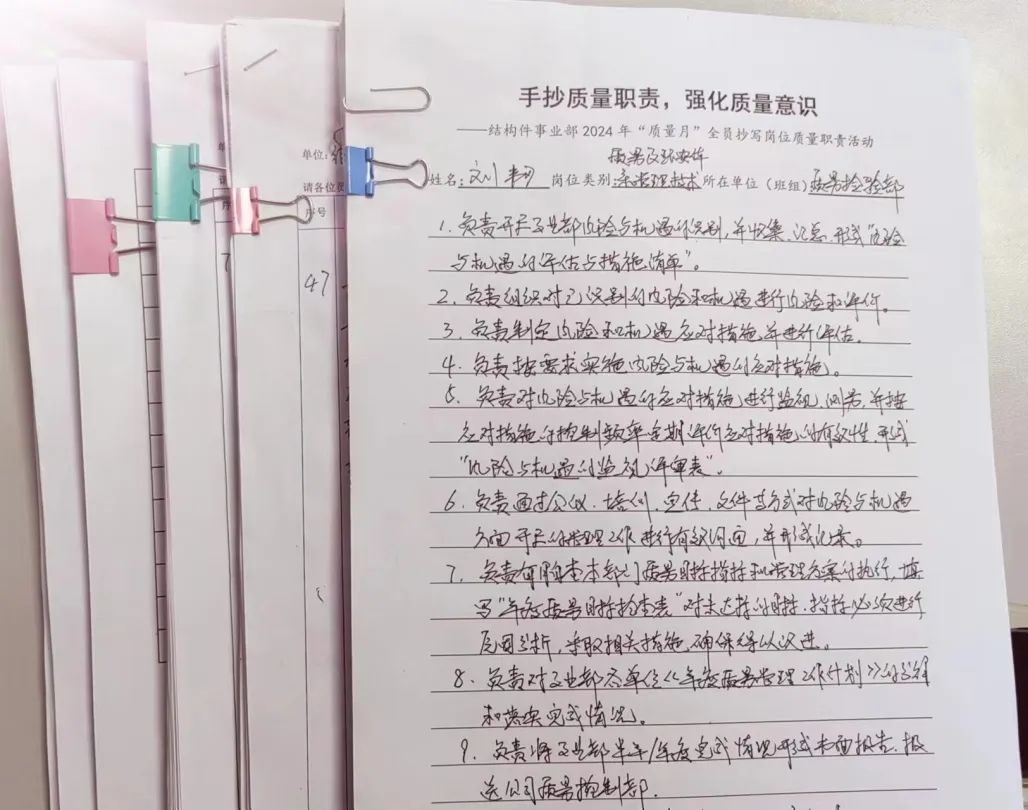 手抄质量职责，强化质量意识
——结构件事业部2024年“质量月”全员抄写岗位质量职责活动
质量及环安体
姓名：刘 岗位类别：系管理技术 所在单位（班组）质量检验部
1. 负责开展事业部风险与机遇的识别，并收集、汇总、形成“风险
与机遇的评估与措施清单”。
2. 负责组织对已识别的风险和机遇进行风险和评价。
3. 负责制定风险和机遇应对措施，并进行评估。
4. 负责按要求实施风险与机遇的应对措施。
5. 负责对风险与机遇的应对措施进行监视、测量，并按
应对措施的控制频率定期评价应对措施的有效性，形成
“风险与机遇的监视评审表”。
6. 负责通过会议、培训、宣传、文件等方式对风险与机遇
方面开展的管理工作进行有效沟通，并形成记录。
7. 负责每月自查本部门质量目标指标和管理方案的执行，填
写“年度质量目标检查表”对未达标的目标、指标必须进行
原因分析，采取相关措施，确保得以改进。
8. 负责对事业部各单位《年度质量管理工作计划》的分解
和落实完成情况。
9. 负责将事业部半年/年度完成情况形成书面报告，报
送公司质量控制部。
单位：
请各位
序号
47